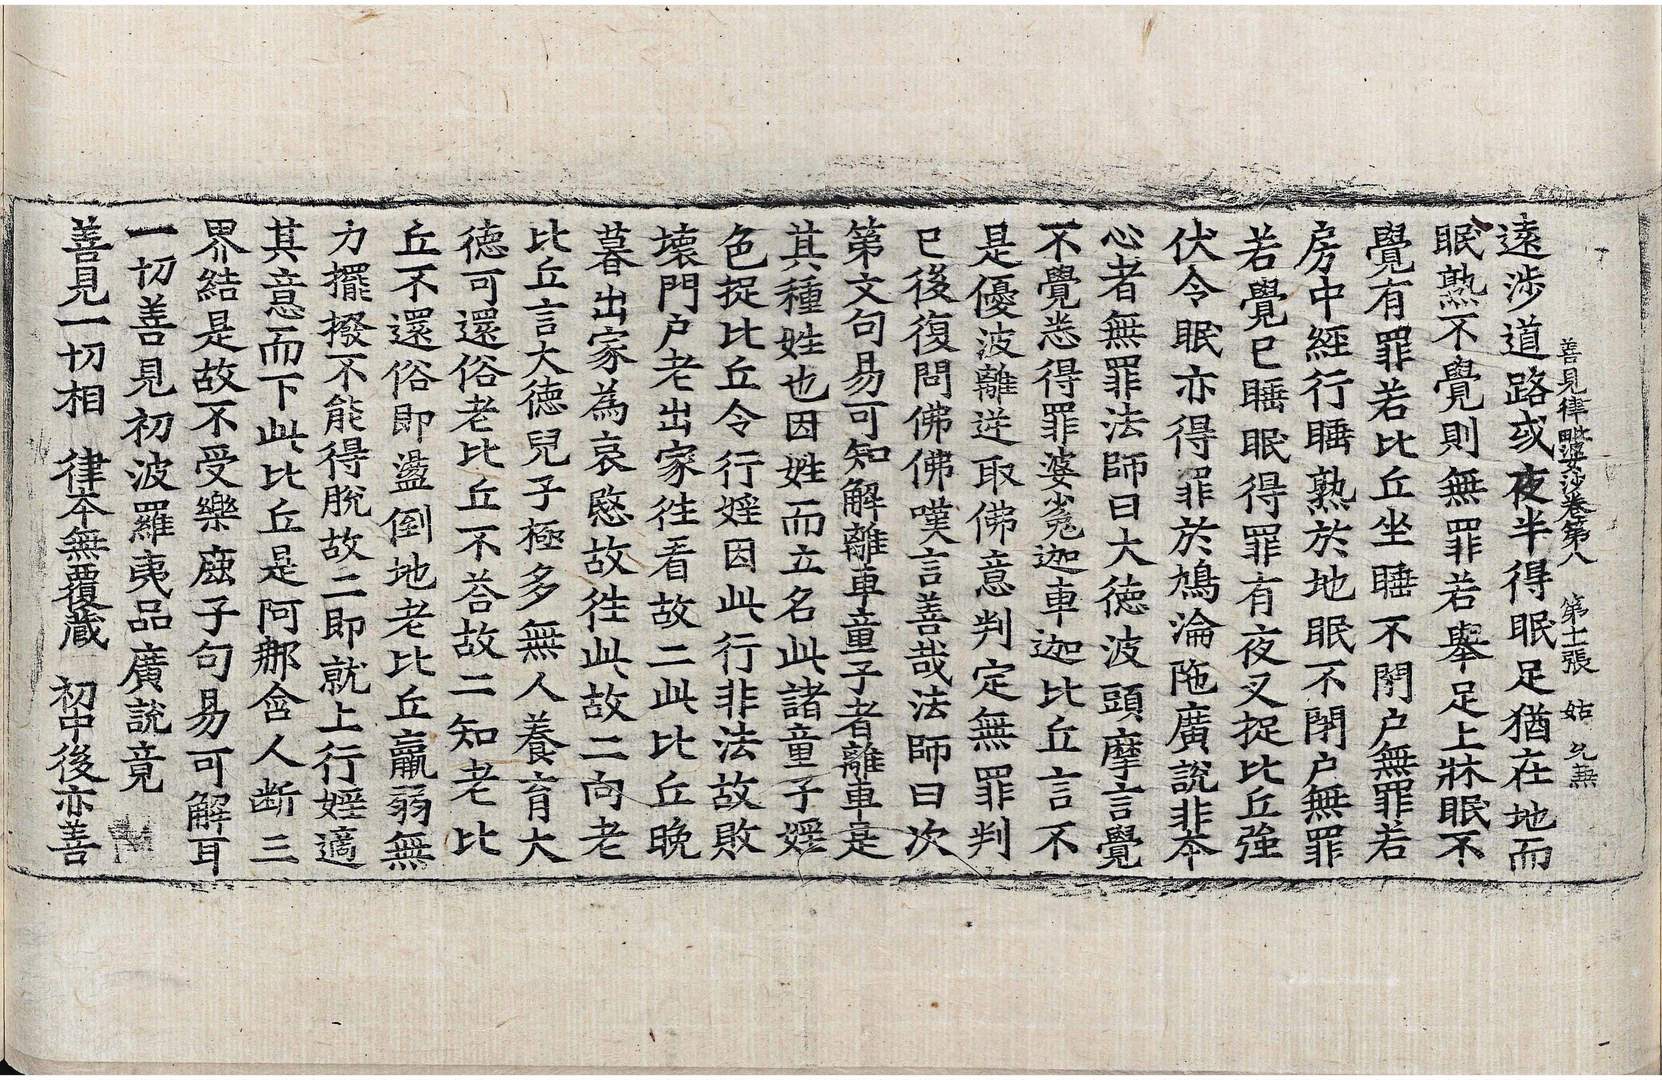 善見律毗婆沙卷第八 第十二張 姑
遠涉道路或夜半得眠足猶在地而
眠熟不覺則無罪若舉足上牀眠不
覺有罪若比丘坐睡不閉户無罪若
房中經行睡熟於地眠不閉户無罪
若覺已睡眠得罪有夜叉捉比丘強
伏令眠亦得罪於鳩淪陁廣說非夲
心者無罪法師曰大德波頭摩言覺
不覺悉得罪婆㝹迦車迦比丘言不
是優波離送取佛意判定無罪判
已後復問佛佛嘆言善哉法師曰次
第文句易可知解離車童子者離車是
其種姓也因姓而立名此諸童子婬
色捉比丘令行婬因此行非法故敗
壞門户老出家往看故二此比丘晚
暮出家為哀愍故往此故二向老
比丘言大德兒子極多無人養育大
德可還俗老比丘不荅故二知老比
丘不還俗即盪倒地老比丘羸弱無
力擺撥不能得脫故二即就上行婬適
其意而下此比丘是阿那含人断三
界結是故不受樂鹿子句易可解耳
一切善見初波羅夷品廣說竟
善見一切相 律夲無覆蔵 初中後亦善